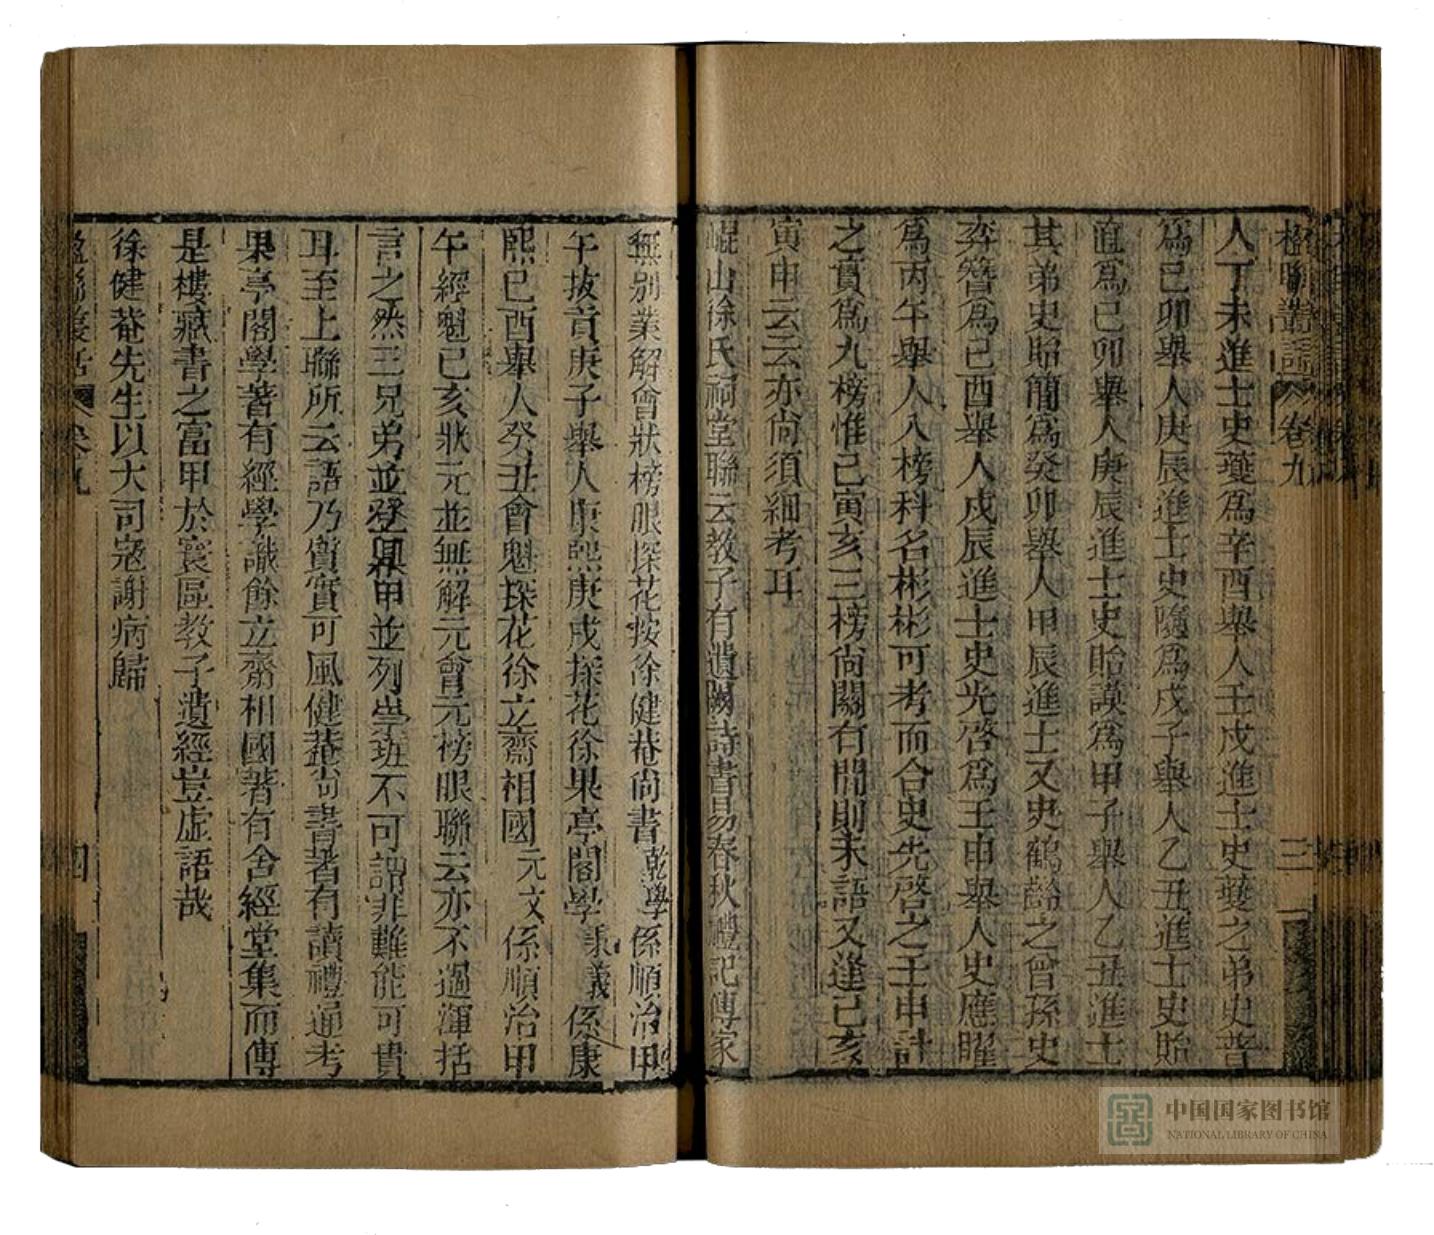 楹聯叢話 卷九 三
人丁未進士史夔爲辛酉舉人壬戌進士史夔之弟史普
爲己卯舉人庚辰進士史隨爲戊子舉人乙丑進士史貽
直爲己卯舉人庚辰進士史貽謨爲甲子舉人乙丑進士
其弟史昭簡爲癸卯舉人甲辰進士又史鶴齡之曾孫史
奕簪爲己酉舉人戊辰進士史光啓爲壬申舉人史應曜
爲丙午舉人八榜科名彬彬可考而合史先啓之壬申計
之實爲九榜惟己寅亥三榜尚闕有間則未語又逢己亥
寅申云云亦尚須細考耳
崐山徐氏祠堂聯云教子有遺闕詩書易春秋禮記傳家
無别業解會狀榜眼探花按徐健菴尚書乾學係順治甲
午拔貢庚子舉人康熙庚戌探花徐果亭閣學秉義係康
熙己酉舉人癸丑會魁探花徐立齋相國元文係順治甲
午經魁己亥狀元並無解元會元榜眼聯云亦不過渾括
言之然三兄弟並登鼎甲並列崇班不可謂非難能可貴
耳至上聯所云語乃實實可風健菴尚書著有讀禮通考
果亭閣學著有經學識餘立齋相國著有含經堂集而傳
是樓藏書之富甲於寰區教子遺經豈虛語哉
徐健菴先生以大司寇謝病歸
楹聯叢話 卷九 四
中国国家图书馆
NATIONAL LIBRARY OF CHINA